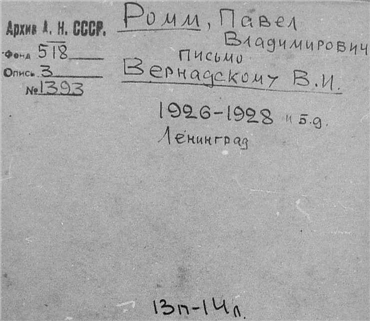 Архив А. Н. СССР.
Фонд 518
Опись 3
№1393
Ромм, Павел
Владимирович
письмо
Вернадскому В.И.
1926-1928 и б.д.
Ленинград
13п-14л.